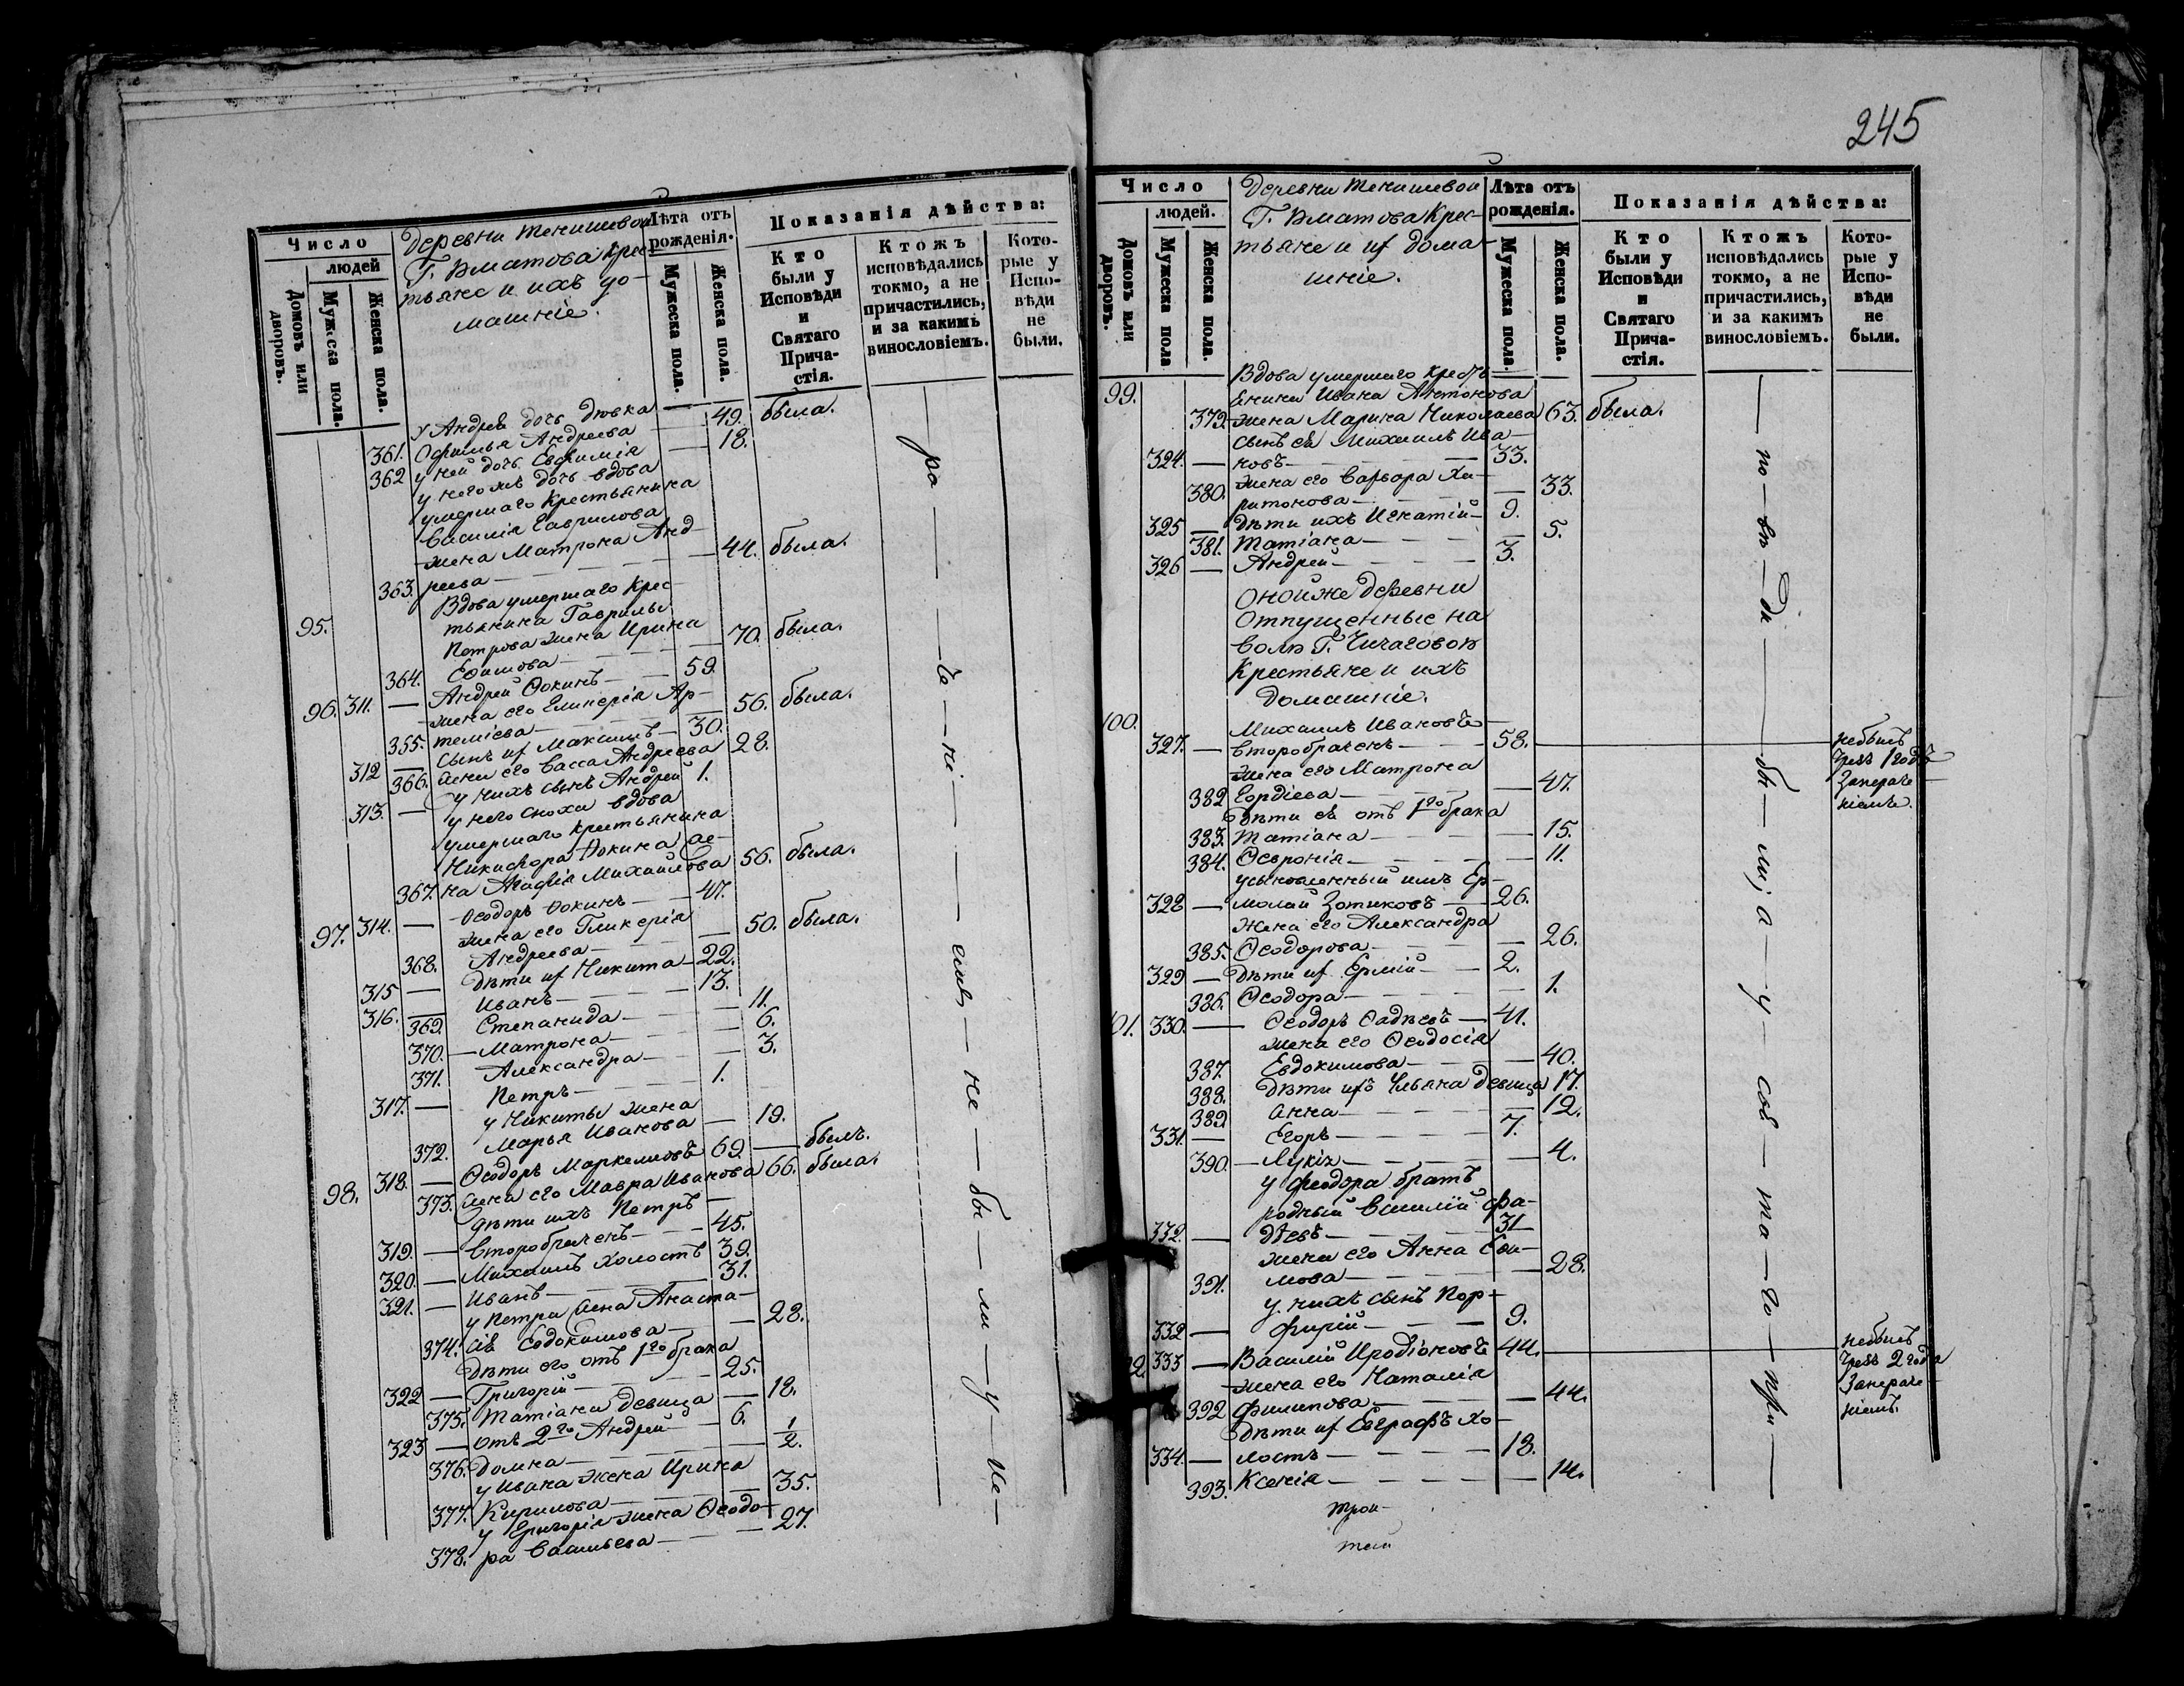 245
Число
людей
Домовъ или дворовъ.
Мужска пола.
Женска пола.
Деревни Тенишевой
Г. Вматова Крес-
тьяне и ихъ до-
машніе.
Лѣта отъ
рожденія.
Мужеска пола.
Женска пола.
Показанія дѣйства:
Кто
были у
Исповѣди
и
Святаго
Прича-
стія.
Ктожъ
исповѣдались
токмо, а не
причастились,
и за какимъ
винословіемъ.
Кото-
рые у
Испо-
вѣди
не
были.
у Андрея дочь дѣвка
361. Офимья Андреева — 49. была.
362 у ней дочь Евфимія — 18.
у него же дочь вдова
умершаго Крестьянина
Василія Гаврилова
жена Матрона Анд-
363. реева — 44. была.
95. Вдова умершаго Крес-
тьянина Гаврилы
Петрова жена Ирина
364. Ефимова — 70. была.
96. 311. — Андрей Фокинъ — 59.
жена его Гликерія Ар-
355. теміева — 56. была.
312 — Сынъ их Максимъ — 30.
366. жена его Васса Андреева 28.
313. — у нихъ сынъ Андрей 1.
у него сноха вдова
умершаго крестьянина
Никифора Фокина же-
367. на Агафія Михаилова 56. была.
97. 314. — Ѳеодоръ Фокинъ — 47.
жена его Гликерія
368. Андреева — 50. была.
315 — Дѣти их Никита — 22.
316. — Иванъ — 13.
369. Степанида — 11.
370. — Матрона — 6.
371. Александра — 3.
317. — Петръ — 1.
у Никиты жена
372. Марья Иванова — 19.
98. 318. — Ѳеодоръ Маркелловъ 69. — былъ.
373. жена его Мавра Иванова 66. была.
Дѣти ихъ Петръ —
319. — второбраченъ — 45.
320. — Михаилъ холостъ 39.
321. — Иванъ — 31.
у Петра жена Анаста-
374. сія Евдокимова — 28.
Дѣти его отъ 1го брака
322 — Григорій — 25.
375. Татіана девица — 18.
323 — отъ 2го Андрей — 6.
376. Домна — 1/2.
у Ивана жена Ирина
377. Кирилова — 35.
у Григорія жена Ѳеодо-
378. ра Васильева — 27.
ра — бо — ні — емъ — не — бы — ли — у — Ис —
Число
людей.
Домовъ или дворовъ.
Мужеска пола
Женска пола.
Деревни Тенишевой
Г. Вматова Крес-
тьяне и их дома-
шніе.
Лѣта отъ
рожденія.
Мужеска пола.
Женска пола.
Показанія дѣйства:
Кто
были у
Исповѣди
и
Святаго
Прича-
стія.
Ктожъ
исповѣдались
токмо, а не
причастились,
и за какимъ
винословіемъ.
Кото-
рые у
Испо-
вѣди
не
были.
99. Вдова умершаго Кресть-
янина Ивана Антонова
379. жена Марина Николаева 63. была.
сынъ ея Михаилъ Ива-
324. — новъ — 33.
жена его Варвара Ха-
380. ритонова — 33.
325 — Дѣти ихъ Игнатій — 9.
381. Татіана — 5.
326 — Андрей — 3.
Онойже деревни
Отпущенные на
волю Г. Чичаговой
Крестьяне и ихъ
домашніе.
100. Михаилъ Ивановъ —
327. — второбраченъ — 58. — небылъ
чрезъ 1 годъ
Занераче-
ніемъ.
жена его Матрона
382 Гордіева — 47.
Дѣти ея отъ 1го брака
383. Татіана — 15.
384. Февронія — 11.
усыновленный имъ Ер-
328 — молай Зотиковъ — 26.
Жена его Александра
385. Ѳеодорова — 26.
329 — Дѣти их Ермій — 2.
386. Ѳеодора — 1.
101. 330. — Ѳеодоръ Фадѣевъ — 41.
жена его Ѳеодосія
387. Евдокимова — 40.
388. Дѣти ихъ Ульяна Девица 17.
389. Анна — 12.
331. — Егоръ — 7.
390. — Лукія — 4.
у Феодора братъ
родный Василій Фа-
332. — дѣевъ — 31
жена его Анна Ефи-
391. мова — 28.
у нихъ сынъ Пор-
332 — фирій — 9.
333 — Василій Иродіоновъ 44. — небылъ
чрезъ 2 года
Занераче-
ніемъ.
жена его Наталія
392 Филипова — 44.
Дѣти их Евграфъ хо-
334. — лостъ — 18.
393. Ксенія — 14.
по — вѣ — ди — бы — ли; а — у — соб — та — го — при —
трои-